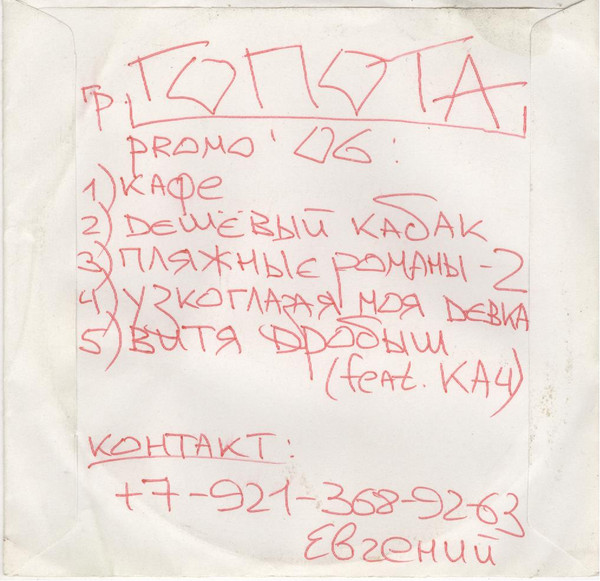 гр. ГОПОТА
PROMO '06:
1) КАФЕ
2) ДЕШЁВЫЙ КАБАК
3) ПЛЯЖНЫЕ РОМАНЫ-2
4) УЗКОГЛАЗАЯ МОЯ ДЕВКА
5) ВИТЯ ДРОБЫШ
(feat. КАЧ)
КОНТАКТ:
+7-921-368-92-63
Евгений